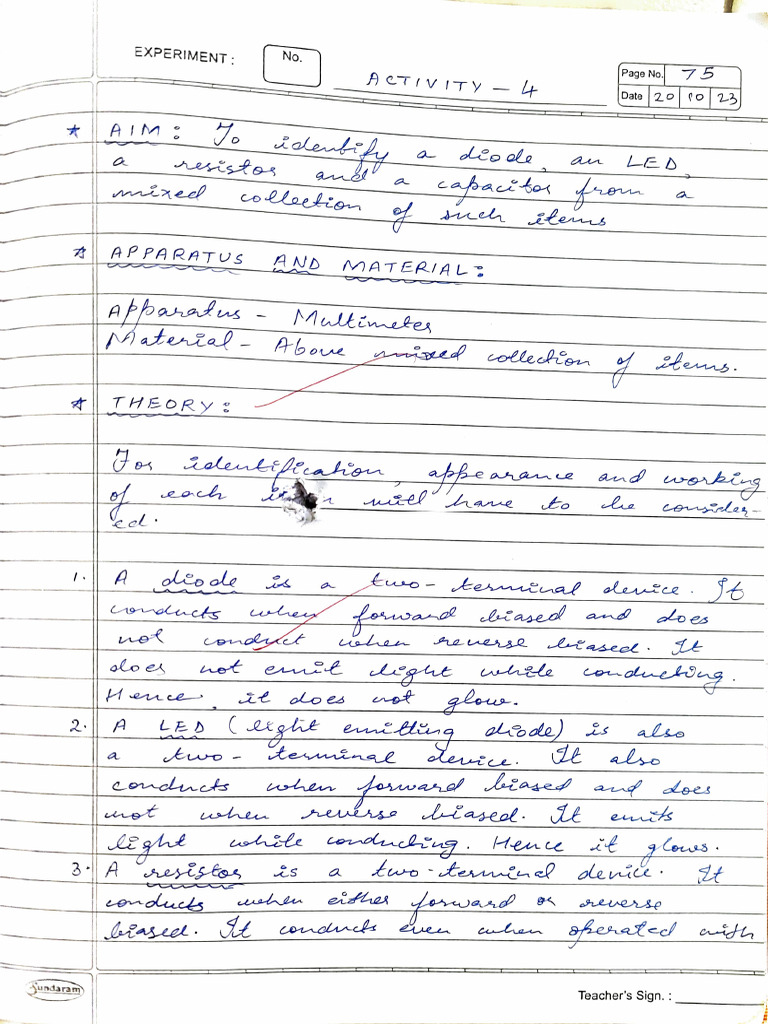 EXPERIMENT :
No.
ACTIVITY - 4
Page No. 75
Date 20 10 23
* AIM : To identify a diode, an LED,
a resistor and a capacitor from a
mixed collection of such items
* APPARATUS AND MATERIAL :
Apparatus - Multimeter
Material - Above mixed collection of items.
* THEORY :
For identification, appearance and working
of each will have to be consider-
ed.
1. A diode is a two-terminal device. It
conducts when forward biased and does
not conduct when reverse biased. It
does not emit light while conducting.
Hence, it does not glow.
2. A LED (light emitting diode) is also
a two-terminal device. It also
conducts when forward biased and does
not when reverse biased. It emits
light while conducting. Hence it glows.
3. A resistor is a two-terminal device. It
conducts when either forward or reverse
biased. It conducts even when operated with
Sundaram
Teacher's Sign. :